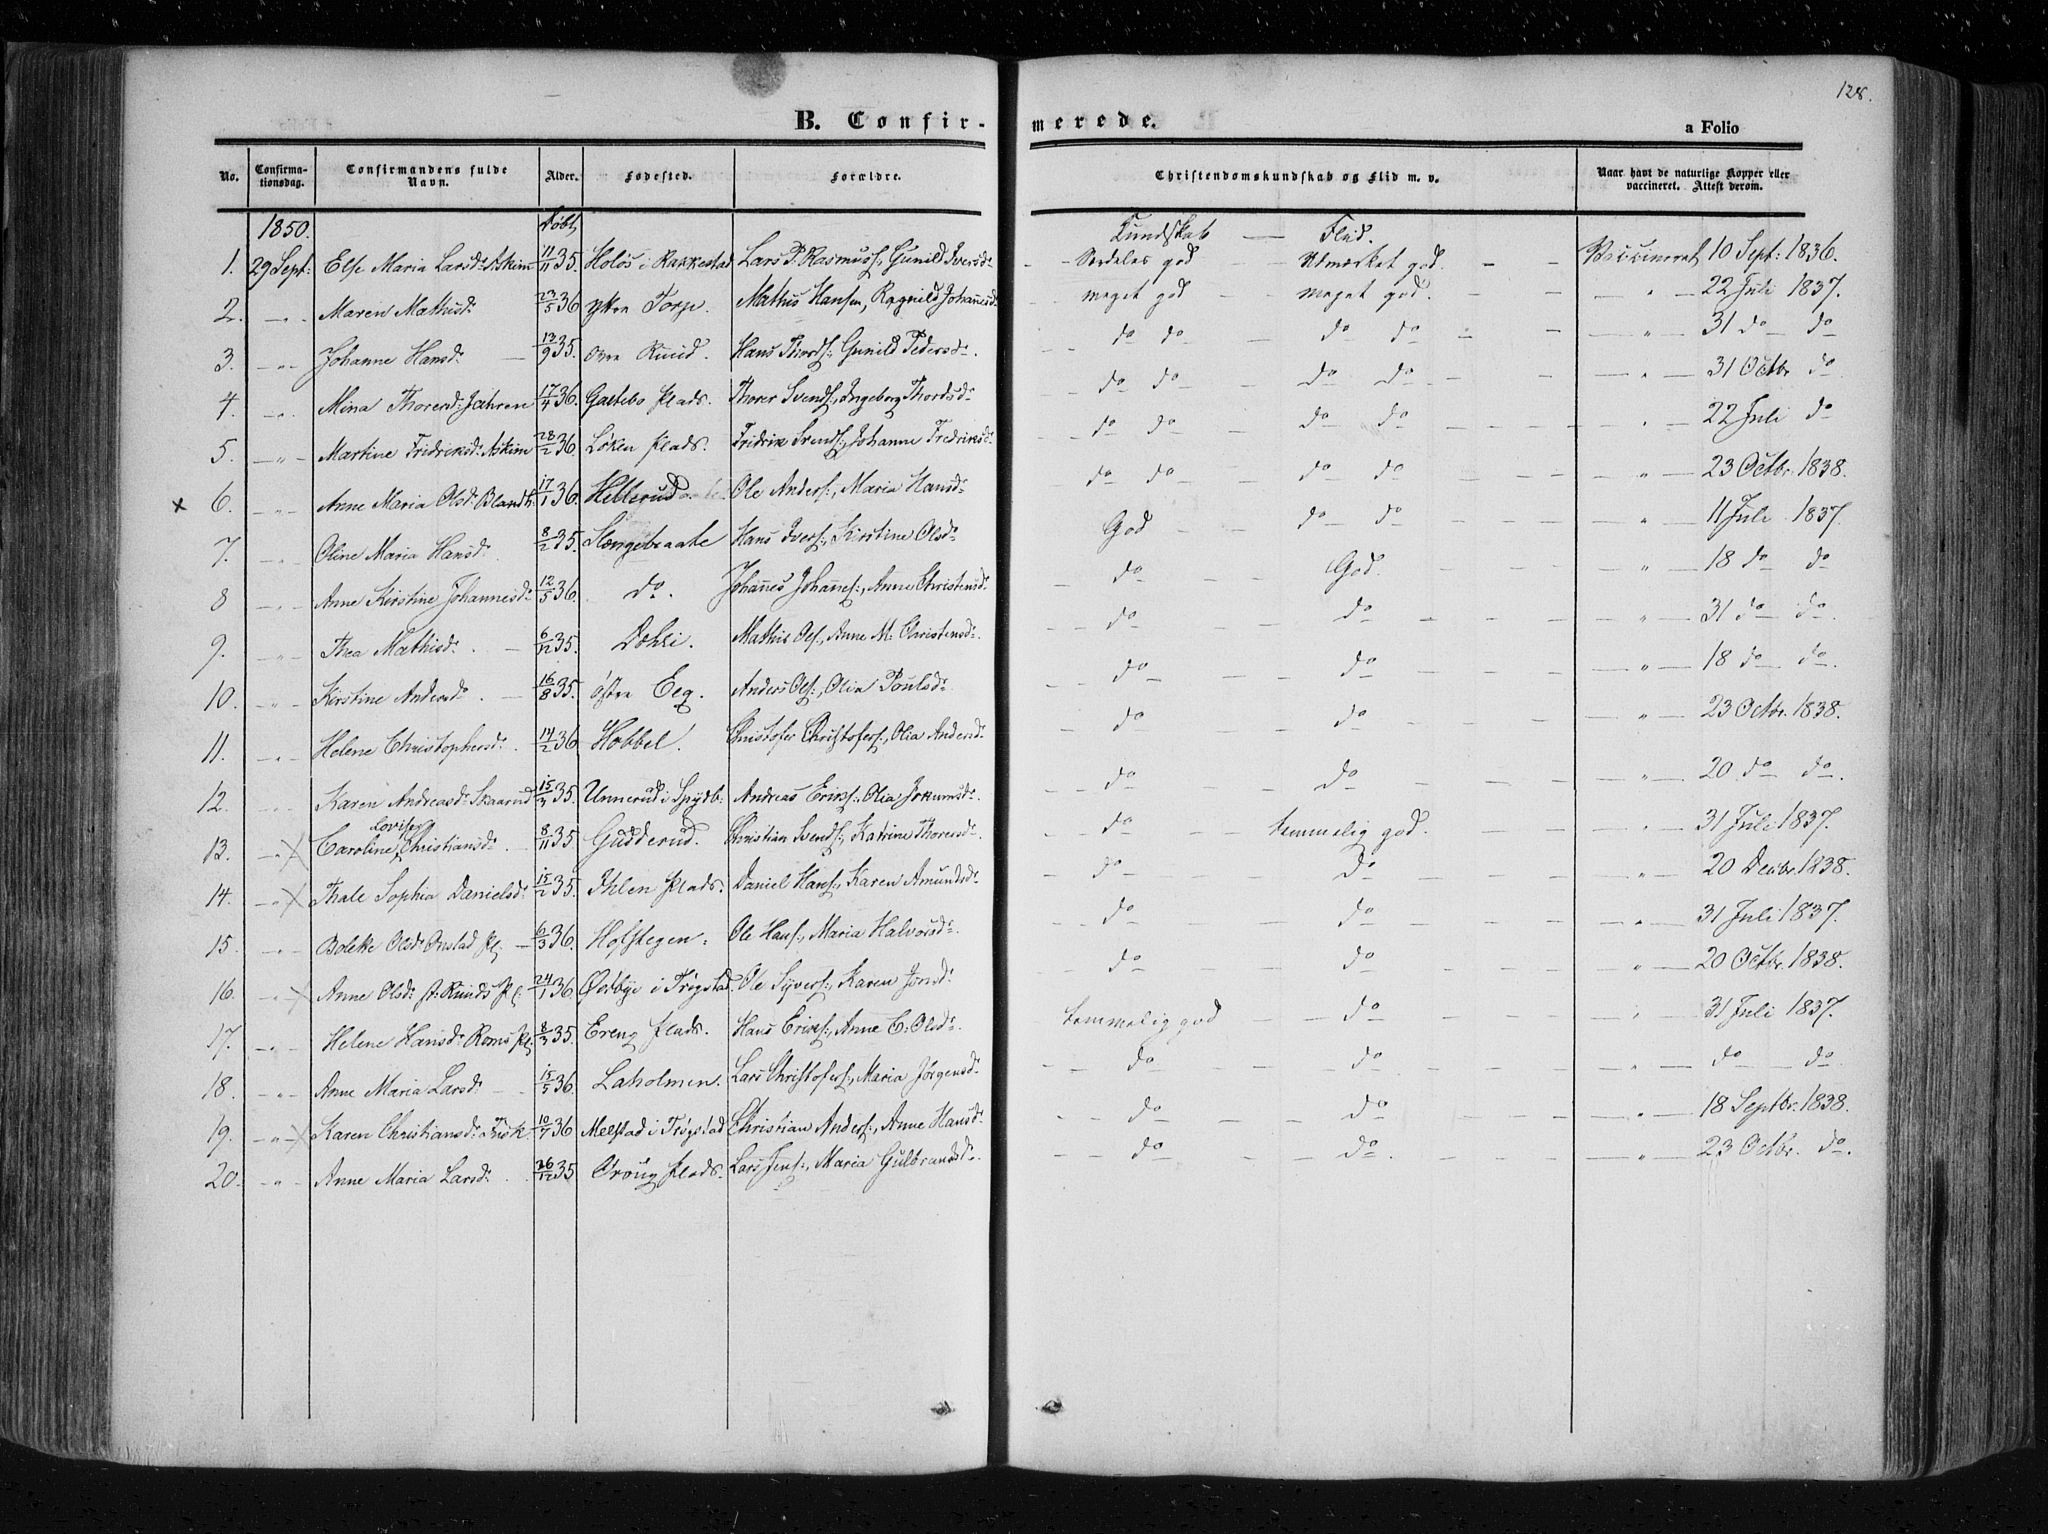 128.
B. Confir- merede.
a Folio
No. Confirma-tionsdag. Confirmandens fulde Navn. Alder. Fødested. Forældre. Christendomskundskab og Flid m. v. Naar havt de naturlige Kopper eller vaccineret. Attest derom.
1850. Døbt Kundskab — Flid.
1. 29 Sept: Else Maria Larsd: Askim 11/11 35. i Rakkestad Lars P. Rasmuss:, Gunild Iversdr Særdeles god Udmærket god. Vaccineret 10 Sept: 1836.
2. „ Maren Mathisdr 23/5 36 Ytre Torp. Mathis Hansen, Ragnild Johannesdr meget god meget god. „ 22 Juli 1837.
3. „ Johanne Hansdr 13/9 35. Øvre Ruud. Hans Thords:, Gunild Pedersdr. do do do do „ 31 do do
4. „ Mina Thorerd: Jahren 17/4 36. Gastebo Plads. Thorer Svends:, Ingeborg Thordsdr do do do do „ 31 Octbr do
5. „ Martine Fridriksdr Askim 28/2 36. Løken Plads. Fridrik Svends:, Johanne Fredriksdr do do do do „ 22 Juli do
x 6. „ Anne Maria Olsdr 17/1 36. Hellerud Ole Anders:, Maria Hansdr do do do do „ 23 Octbr. 1838.
7. „ Oline Maria Hansd. 8/2 35. Slængebraate Hans Ivers:, Kirstine Olsdr God do do „ 11 Juli 1837.
8 „ Anne Kirstine Johannesdr 12/5 36. do. Johannes Johannes:, Anne Christensdr do God. „ 18 do do
9. „ Thea Mathisdr. 6/12 35. Dohli. Mathis Ols:, Anne M: Christensdr. do do „ 31 do do.
10. „ Kirstine Andersdr. 16/8 35. Østre Eeg. Anders Ols:, Olia Poulsdr do do „ 18 do do.
11. „ Helene Christophersdr. 14/2 36. Hobbel. Christofer Christofers:, Olia Andersdr do do „ 23 Octbr. 1838.
12. „ Karen Andreasdr Skaarud 15/3 35. Unnerud i Spydb: Andreas Eriks:, Olia Jokumsdr. do do „ 20 do do.
Lovise
13. „ x Caroline Christiansdr. 8/11 35. Gudderud. Christian Svends:, Katrine Thorersdr. do temmelig god. „ 31 Juli 1837.
14. „ x Thale Sophia Danielsdr. 15/2 35. Ihlen Plads. Daniel Hans:, Karen Amundsdr do do „ 20 Decbr. 1838.
15. „ Bolette Olsdr Onstad Pl: 6/3 36. Hofstegen. Ole Hans:, Maria Halvorsdr. do do „ 31 Juli 1837.
16. „ x Anne Olsdr st: Ruuds Pl: 24/1 36. i Trøgstad. Ole Syvers:, Karen Jonsdr do do „ 20 Octbr. 1838.
17. „ Helene Hansdr Roms Pl: 8/3 35. Ereng Plads. Hans Eriks:, Anne C: Olsdr. temmelig god do „ 31 Juli 1837.
18. „ Anne Maria Larsdr. 15/5 36. Laholmen. Lars Christofers:, Maria Jørgensdr. do do do do.
19. „ x Karen Christiansdr Fusk. 10/7 36 Melstad i Trøgstad Christian Anders:, Anne Hansdr. do do „ 18 Septbr. 1838.
20. „ Anne Maria Larsdr. 26/12 35 Plads. Lars Jens:, Maria Gulbrandsdr. do do. „ 23 Octbr. do.